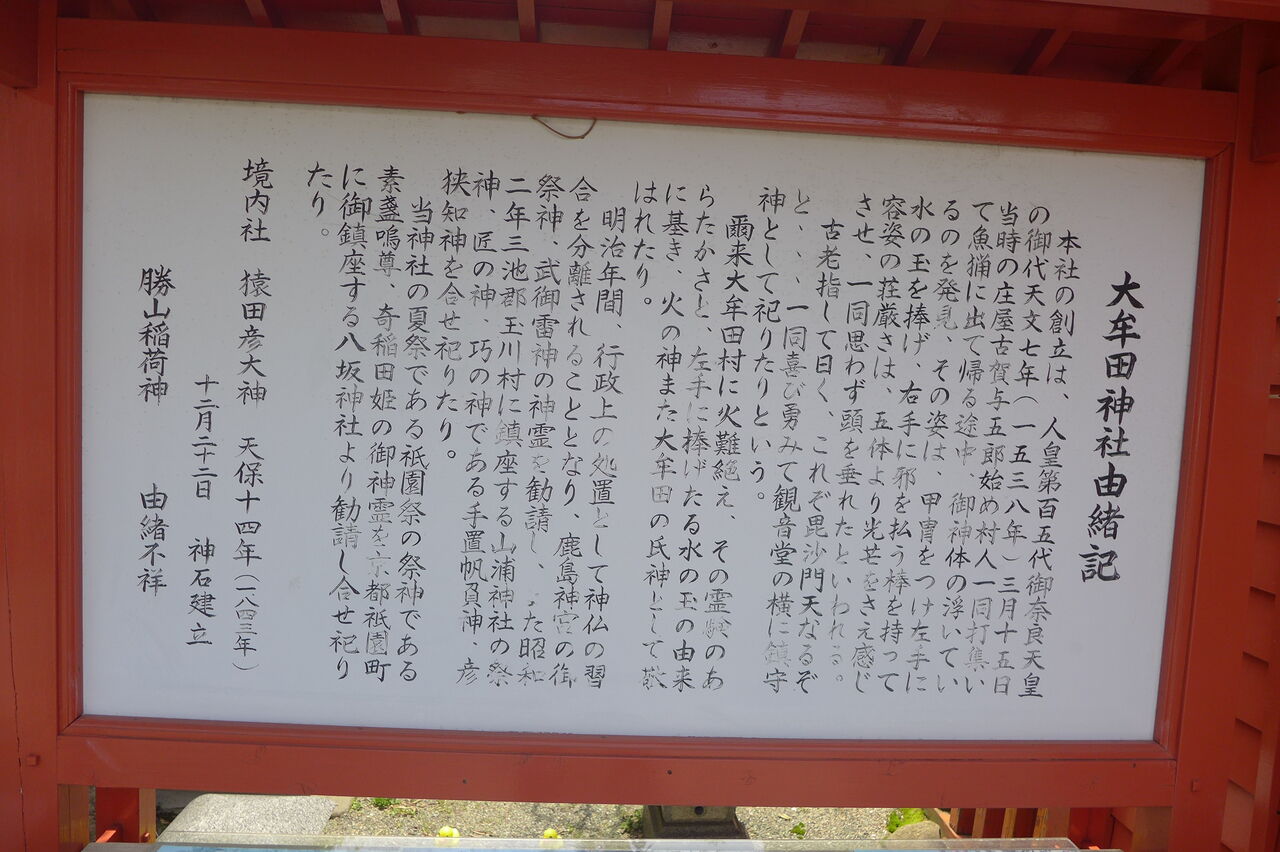 大牟田神社由緒記
本社の創立は、人皇第百五代御奈良天皇
の御代天文七年(一五三八年)三月十五日
当時の庄屋古賀与五郎始め村人一同打集い
て魚猟に出て帰る途中、御神体の浮いてい
るのを発見、その姿は、甲冑をつけ左手に
水の玉を捧げ、右手に邪を払う棒を持って
容姿の荘厳さは、五体より光芒をさえ感じ
させ、一同思わず頭を垂れたといわれる。
古老指して曰く、これぞ毘沙門天なるぞ
と、、一同喜び勇みて観音堂の横に鎮守
神として祀りたりという。
爾来大牟田村に火難絶え、その霊験のあ
らたかさと、左手に捧げたる水の玉の由来
に基き、火の神また大牟田の氏神として敬
はれたり。
明治年間、行政上の処置として神仏の習
合を分離されることとなり、鹿島神宮の御
祭神、武御雷神の神霊を勧請し、また昭和
二年三池郡玉川村に鎮座する山浦神社の祭
神、匠の神、巧の神である手置帆負神、彦
狭知神を合せ祀りたり。
当神社の夏祭である祇園祭の祭神である
素盞嗚尊、奇稲田姫の御神霊を京都祇園町
に御鎮座する八坂神社より勧請し合せ祀り
たり。
境内社 猿田彦大神 天保十四年(一八四三年)
十二月二十二日 神石建立
勝山稲荷神 由緒不祥